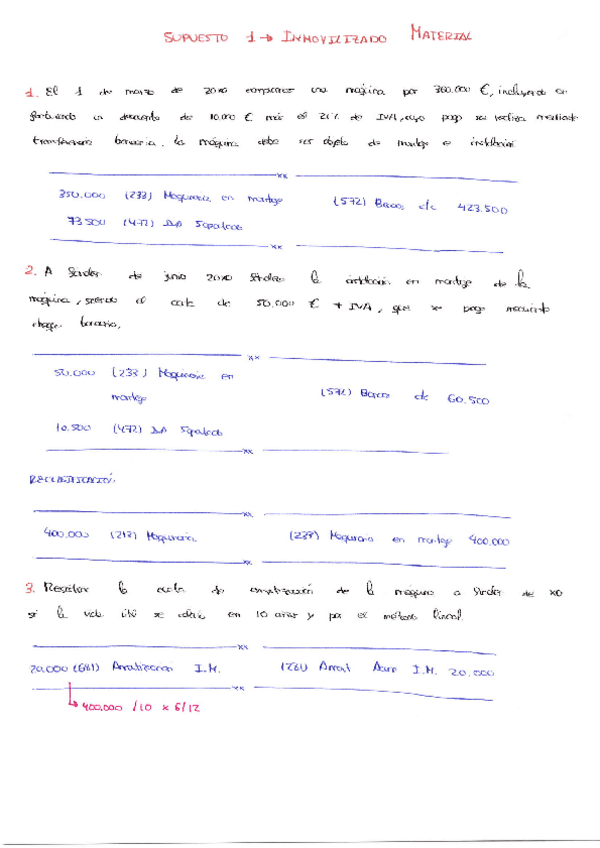 SUPUESTO 1 → INMOVILIZADO MATERIAL
1. El 1 de marzo de 2010 compramos una máquina por 360.000 €, incluyendo en
factura un descuento de 10.000 € más el 21% de IVA, cuyo pago se realiza mediante
transferencia bancaria. La máquina debe ser objeto de montaje e instalación
xx
350.000 (233) Maquinaria en montaje
(572) Bancos c/c 423.500
73.500 (472) IVA Soportado
xx
2. A de junio la instalación en montaje de la
máquina, siendo el coste de 50.000 € + IVA, que se paga mediante
cheque bancario.
xx
50.000 (233) Maquinaria en
montaje
(572) Bancos c/c 60.500
10.500 (472) IVA Soportado
xx
RECLASIFICACIÓN:
xx
400.000 (213) Maquinaria
(233) Maquinaria en montaje 400.000
xx
3. la cuota de amortización de la máquina a de
si la vida útil se en 10 años y por el método lineal.
xx
20.000 (681) Amortización I.M.
(281) Amort Acum I.M. 20.000
xx
↳ 400.000 /10 x 6/12